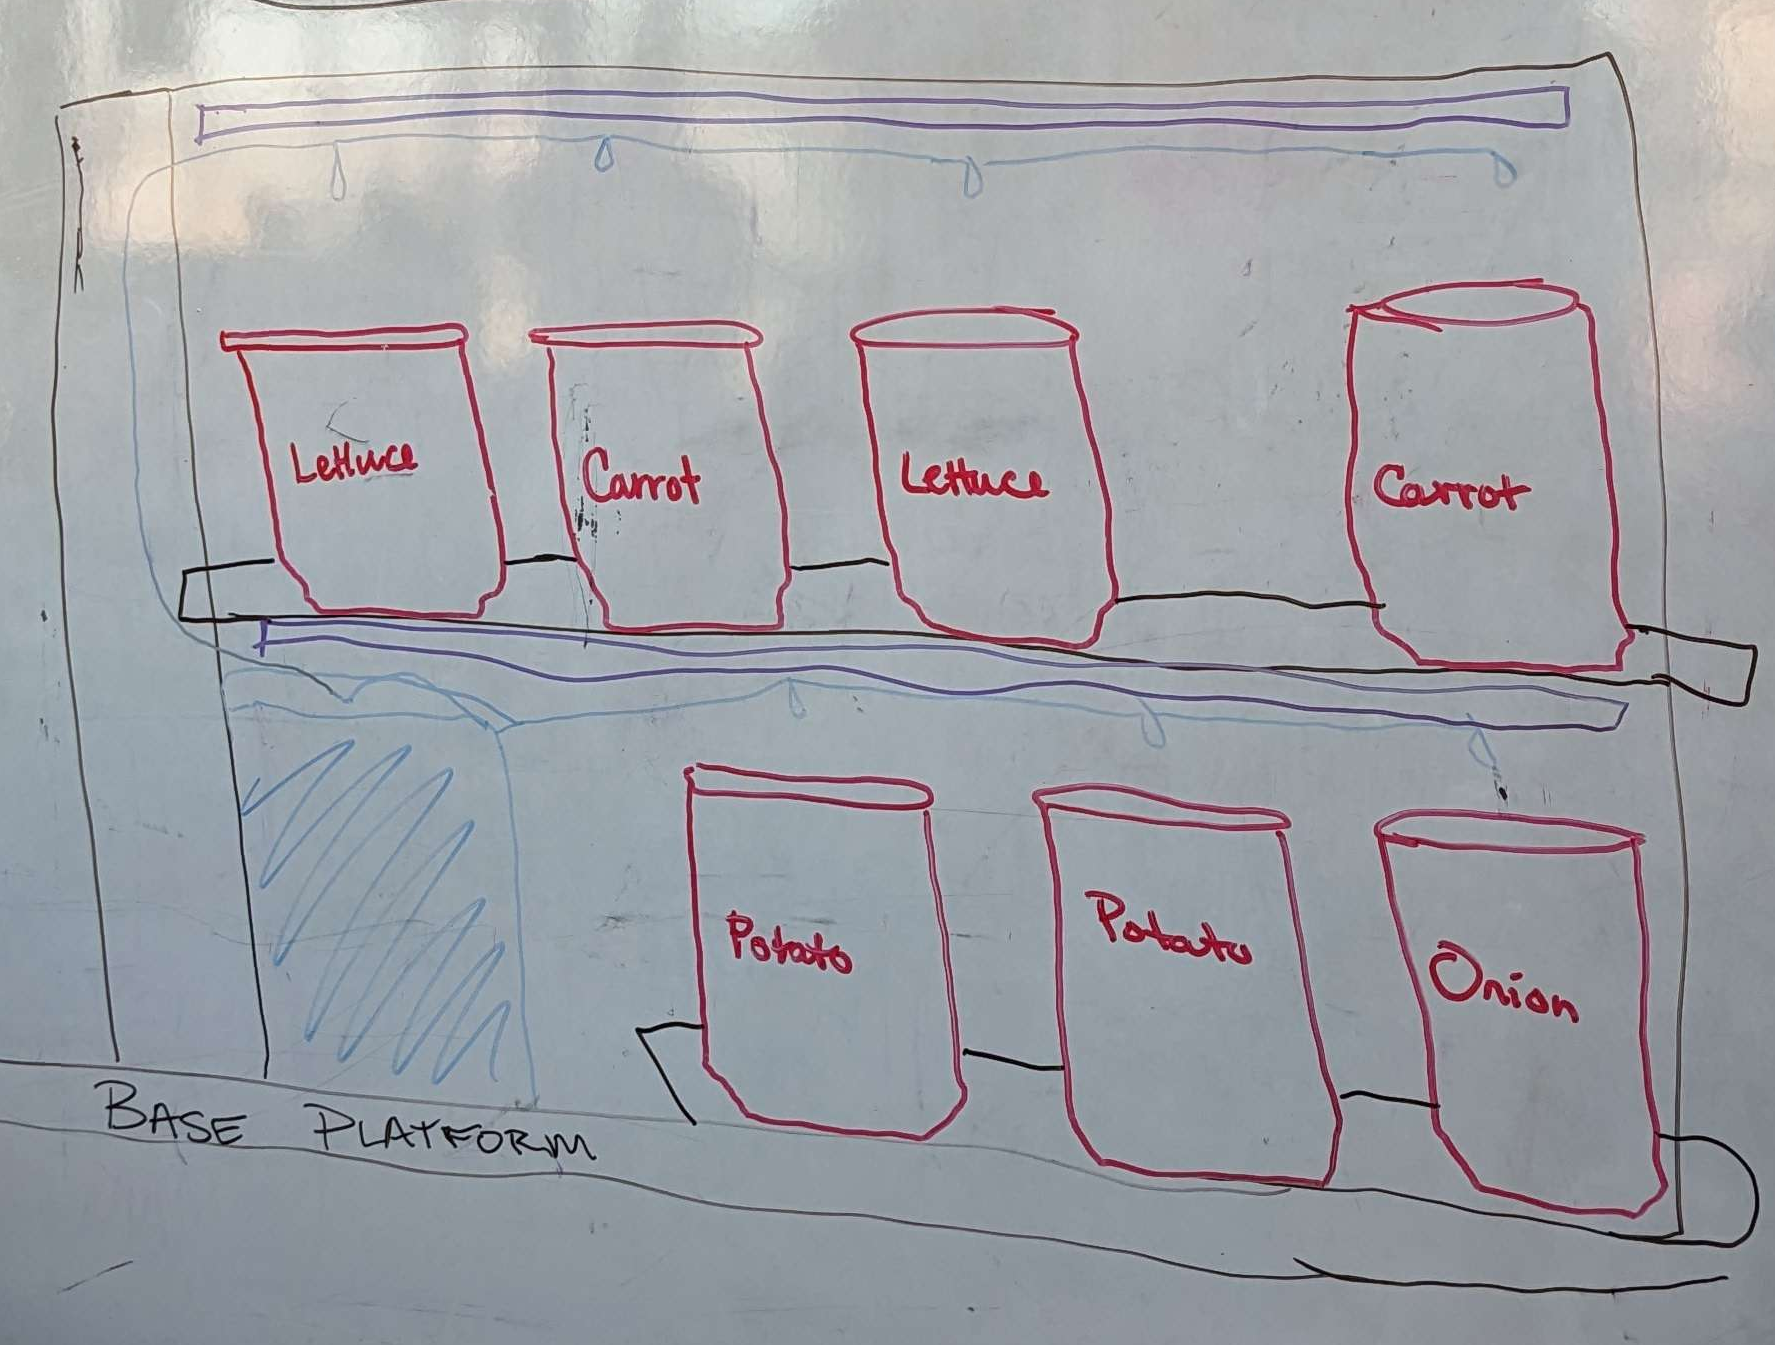 Lettuce
Carrot
Lettuce
Carrot
Potato
Potato
Onion
BASE PLATFORM